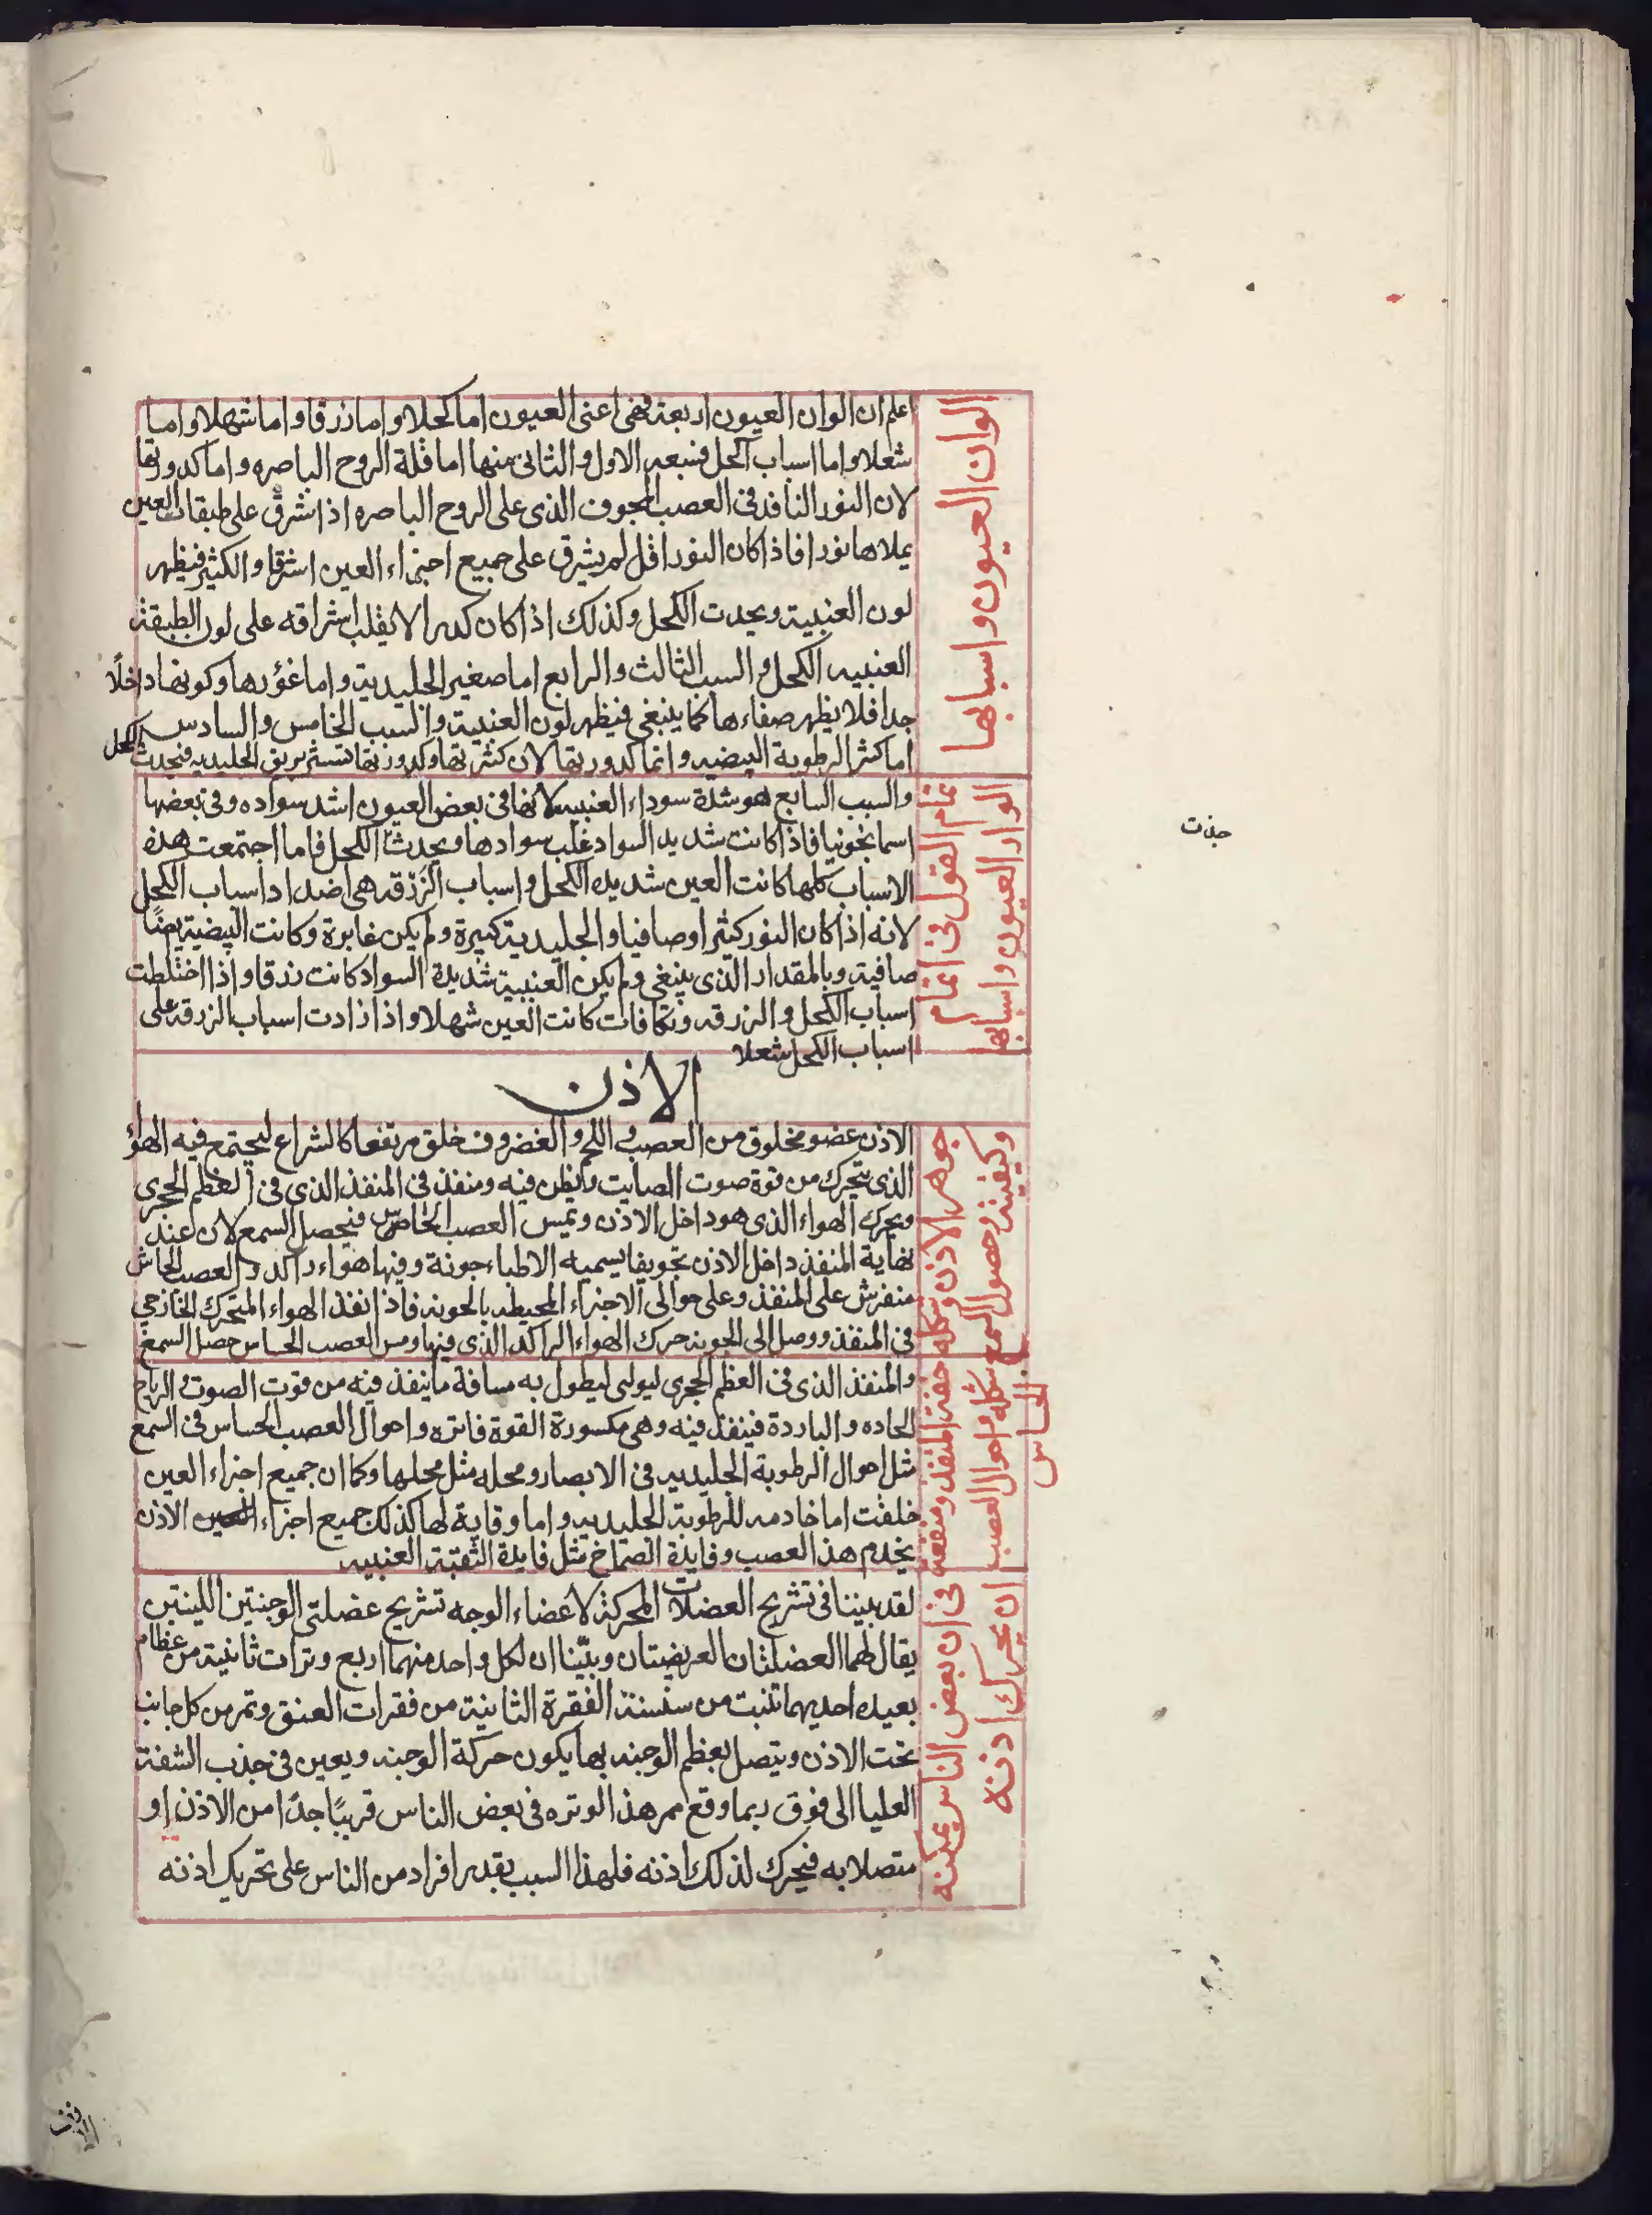 الوان العيون واسبابها
اعلم ان الوان العيون اربعة فهى اعنى العيون اما كحلا واما زرقا واما شهلا واما
شعلا واما اسباب الكحل فسبعه الاول والثانى منها اما قلة الروح الباصره واما كدورتها
لان النور النافذ فى العصب المجوف الذى على الروح الباصره اذا شرق على طبقات العين
يملاها نورا فاذا كان النور اقل لم يشرق على جميع اجزاء العين اشرقا والكثير فيظهر
لون العنبية ويحدث الكحل وكذلك اذا كان كدرا لا يغلب اشراقه على لون الطبقة
العنبيه الكحل والسبب الثالث والرابع اما صغير الجليدية واما غؤرها وكونها داخلًا
جدا فلا يظهر صفاءها كما ينبغى فيظهر لون العنبية والسبب الخامس والسادس
اما كثر الرطوبة البيضيه وانما كدورتها لان كثرتها وكدورتها تستر بريق الجليديه فيحدث الكحل
تمام القول فى اتمام
الوان العيون واسبابها
والسبب السابع هو شدة سوداء العنبيه لانها فى بعض العيون اشد سواده وفى بعضها
اسمانخونيا فاذا كانت شديد السواد غلب سوادها ويحدث الكحل فاما اجتمعت هذه
الاسباب كلها كانت العين شديده الكحل واسباب الزرقه هى اضداد اسباب الكحل
لانه اذا كان النور كثيرا وصافيا والجليدية كبيرة ولم يكن غايرة وكانت البيضية ايضًا
صافية وبالمقدار الذى ينبغى ولم يكن العنبية شديدة السواد كانت زرقا واذا اختلطت
اسباب الكحل والزرقه وتكافات كانت العين شهلا واذا زادت اسباب الزرقة على
اسباب الكحل شعلا
حذت
الاذن
جوهر الاذن وشكله
وكيفية حصول السمع
الاذن عضو مخلوق من العصب واللحم والغضروف خلق مرتفعا كالشراع ليجتمع فيه الهواؤ
الذى يتحرك من قوة صوت الصايت ويطن فيه ومنفذ فى المنفذ الذى فى العظم الحجرى
ويحرك الهواء الذى هو داخل الاذن ويمس العصب الخاص فيحصل السمع لان عند
نهاية المنفذ داخل الاذن تجويفا يسميه الاطباء جونة وفيها هواء راكد والعصب الحاس
منفرش على المنفذ وعلى حوالى الاجزاء المحيطه بالجونه فاذا نفذ الهواء المتحرك الخارجي
فى المنفذ ووصل الى الجونه حرك الهواء الراكد الذى فيها ومس العصب الحساس حصل السمع
المنفذ ومنفعه
شكله واحوال العصب
الحساس
والمنفذ الذى فى العظم الحجرى ليولى ليطول به مسافة ما ينفذ فيه من قوت الصوت والرياح
الحاده والباردة فينفذ فيه وهى مكسورة القوة فاتره واحوال العصب الحساس فى السمع
مثل احوال الرطوبة الجليديه فى الابصار ومحله مثل محلها وكما ان جميع اجزاء العين
خلقت اما خادمه للرطوبة الجليديه واما وقاية لها كذلك جميع اجزاء الاذن
يخدم هذا العصب وفايدة الصماخ مثل فايدة الثقبة العنبيه
فى ان بعض الناس يمكنه
ان يحرك اذنه
لقد بيننا فى تشريح العضلات المحركة لاعضاء الوجه تشريح عضلتى الوجنتين اللينتين
يقال لهما العضلتان العريضتان وبيّنا ان لكل واحد منهما اربع وترات ثانية من عظام
بعيده احديهما تنبت من سنسنة الفقرة الثانية من فقرات العنق وتمر من كل جانب
تحت الاذن ويتصل بعظم الوجنه بها يكون حركة الوجنه ويعين فى جذب الشفة
العليا الى فوق ربما وقع ممر هذا الوتره فى بعض الناس قريبًا جدًا من الاذن او
متصلا به فيحرك لذلك اذنه فلهذا السبب يقدر افراد من الناس على تحريك اذنه